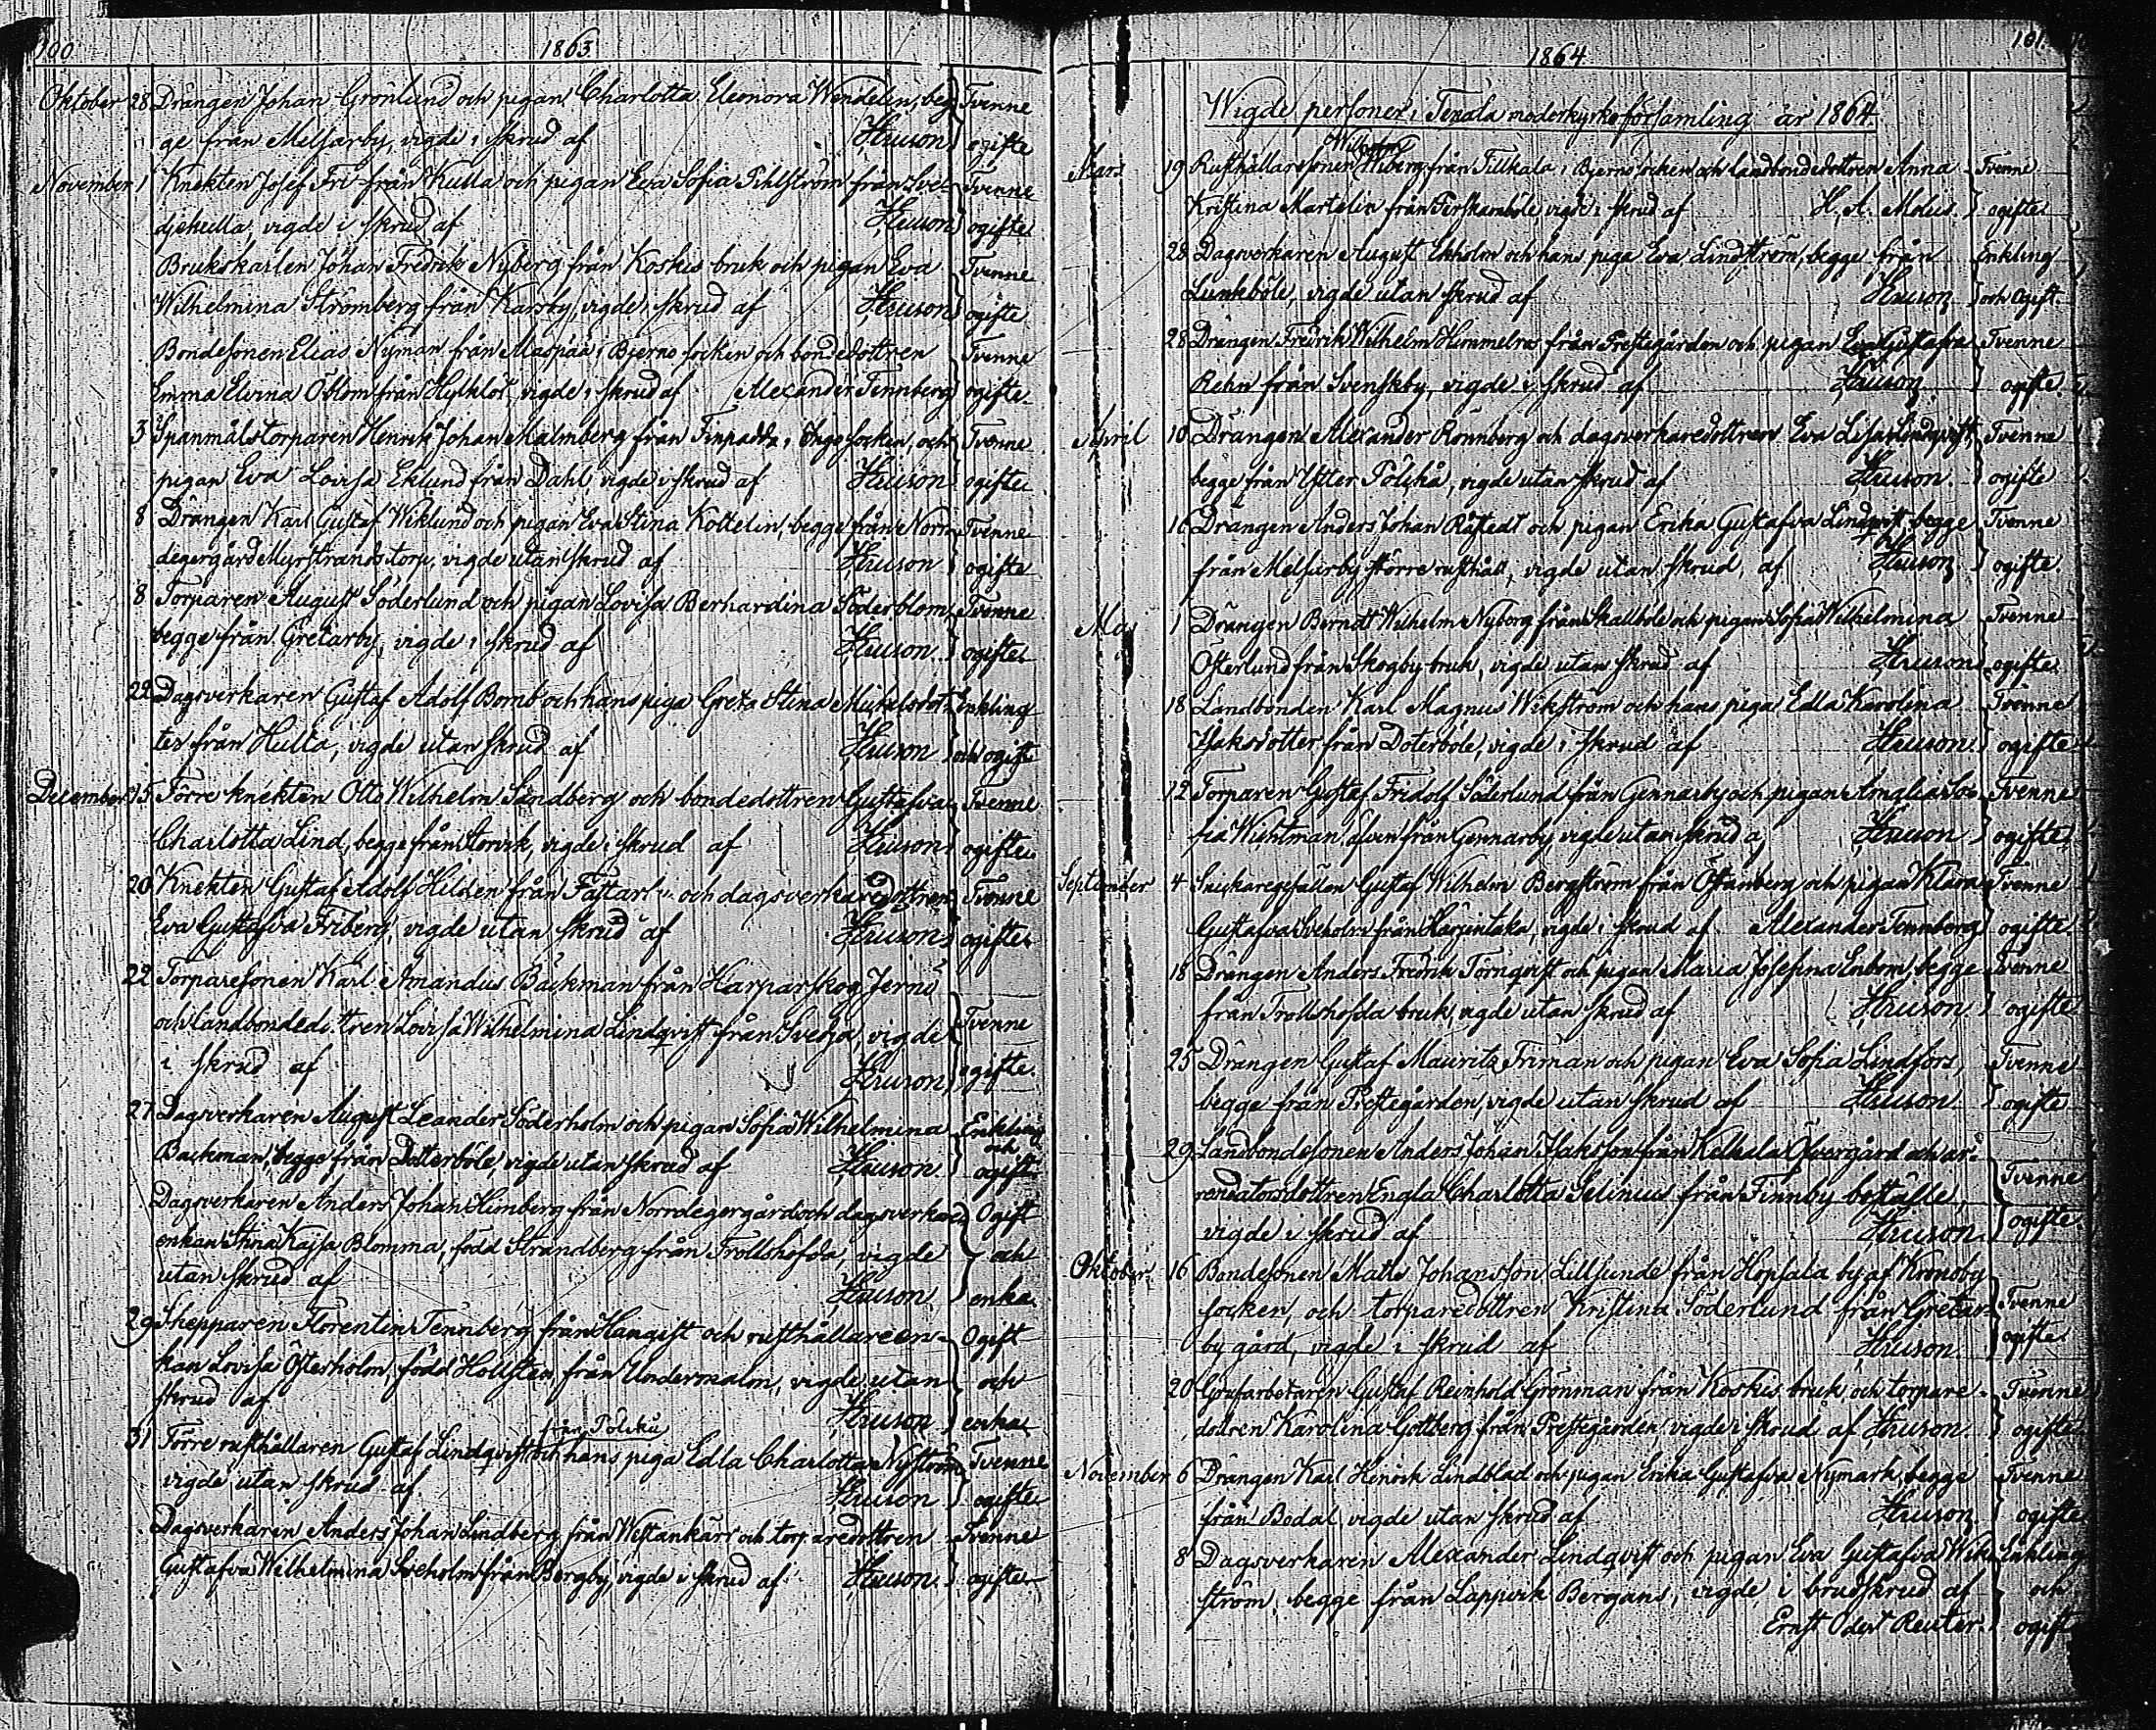 100
1863
Oktober 28 Drängen Johan Grönlund och pigan Charlotta Eleonora Wendelin, beg- Tvenne
ge från Melsarby, vigde i skrud af ogifte
November 1 Knekten Josef Fri från Kulla och pigan Eva Sofia Pihlström från Sve- Tvenne
djekulla vigde i skrud af ogifte
Brukskarlen Johan Fredrik Nyberg från Koskis bruk och pigan Eva Tvenne
Wilhelmina Strömberg från Karsby, vigde i skrud af ogifte
Bondesonen Elias Nyman från i Bjerno socken och bondedottren Tvenne
Emma Elvina Öblom från vigde i skrud af Alexander Tennberg ogifte
3 Spanmålstorparen Henrik Johan Malmberg från i Ingo socken, och Tvenne
pigan Eva Lovisa Eklund från Dahl vigde i skrud af ogifte
8 Drängen Karl Gustaf Wiklund och pigan Eva Stina Kottelin, begge från Norr- Tvenne
degergård Myrstrands torp, vigde utan skrud af ogifte
8 Torparen August Söderlund och pigan Lovisa Berhardina Söderblom, Tvenne
begge från Gretarby, vigde i skrud af ogifte
22 Dagsverkaren Gustaf Adolf Bomb och hans piga Greta Stina Mickelsdot- Enkling
ter från Hulta, vigde utan skrud af och ogift
December 15 Förre knekten Otto Wilhelm Sandberg och bondedottren Gustafva Tvenne
Charlotta Lind, begge från vigde i skrud af ogifte
20 Knekten Gustaf Adolf Hilden från och dagsverkaredottren Tvenne
Eva Gustafva Friberg, vigde utan skrud af ogifte
22 Torparesonen Karl Amandus Bäckman från Harparskog
och landbondedottren Lovisa Wilhelmina Lindqvist från vigde Tvenne
i skrud af ogifte
27 Dagsverkaren August Leander Söderholm och pigan Sofia Wilhelmina Enkling
Backman, begge från Dotterböle, vigde utan skrud af och ogift
Dagsverkaren Anders Johan Himberg från Norrdegergård och dagsverkare- Ogift
enkan Stina Kajsa Blomma, född Strandberg från Trollshofda, vigde och
utan skrud af enka
29 Skepparen Florentin Tennberg från Hangist och rusthållareen- Ogift
kan Lovisa Österholm, född Hollsten från Undermalm, vigde utan och
skrud af enka
från Polsku
31 Förre rusthållaren Gustaf Lindqvist och hans piga Edla Charlotta Nyström Tvenne
vigde utan skrud af ogifte
Dagsverkaren Anders Johan Lindberg från Westankärr och torparedottren Tvenne
Gustafva Wilhelmina Sveholm från Bergby, vigde i skrud af ogifte
101
1864
Wigde personer i Tenala moderkyrkoförsamling år 1864
Mars 19 Rusthållaresonen Wiberg från i Bjerno socken och landbondedottren Anna Tvenne
Kristina Martelin från Perskamböle vigde i skrud af H. A. ogifte
28 Dagsverkaren August Ekholm och hans piga Eva Lindström, begge från Enkling
Lunkböle, vigde utan skrud af och Ogift
28 Drängen Fredrik Wilhelm från Prestegården och pigan Eva Gustafva Tvenne
Rehn från Svenskby, vigde i skrud af ogifte
April 10 Drängen Alexander Rönnberg och dagsverkaredottren Eva Lisa Lindqvist Tvenne
begge från Ytter Polskå, vigde utan skrud af ogifte
16 Drängen Anders Johan och pigan Erika Gustafva Lindqvist begge Tvenne
från Melsarby större rusthåll, vigde utan skrud, af ogifte
Maj 1 Drängen Berndt Wilhelm Nyborg från Skallböle och pigan Sofia Wilhelmina Tvenne
Österlund från Skogby bruk, vigde utan skrud af ogifte
18 Landbonden Karl Magnus Wikström och hans piga Edla Karolina Tvenne
Isaksdotter från Doterböle, vigde i skrud af ogifte
12 Torparen Gustaf Fridolf Söderlund från Gennarby och pigan Amalia So- Tvenne
fia Wichtman även från Gennarby vigde utan skrud af ogifte
September 4 Snickaregesällen Gustaf Wilhelm Bergström från Östanberg och pigan Klara Tvenne
Gustafva Sveholm från vigde i skrud af Alexander Tennberg ogifte
18 Drängen Anders Fredrik Törnqvist och pigan Maria Josefina Enbom, begge Tvenne
från Trollshofda bruk, vigde utan skrud af ogifte
25 Drängen Gustaf Mauritz Friman och pigan Eva Sofia Lindfors, Tvenne
begge från Prestegården, vigde utan skrud af ogifte
29 Landbondesonen Anders Johan Isaksson från Kelkala Öfvergård och ar- Tvenne
rendatorsdottren Engla Charlotta Selinius från Finnby boställe,
vigde i skrud af ogifte
Oktober 16 Bondesonen Matts Johansson Lillsunde från Hopsala by af Kronoby
socken, och torparedottren Kristina Söderlund från Gretar- Tvenne
by gård, vigde i skrud af ogifte
20 Grufarbetaren Gustaf Reinhold Grönman från Koskis bruk och torpare- Tvenne
dottren Karolina Gottberg från Prestegården vigde i skrud af ogifte
November 6 Drängen Karl Henrik Lindblad och pigan Erika Gustafva Nymark, begge Tvenne
från Bodal, vigde utan skrud af ogifte
8 Dagsverkaren Alexander Lindqvist och pigan Eva Gustafva Wik- Enkling
ström, begge från Lappvik Bergans, vigde i brudskrud af och
Ernst Odert Reuter. ogift